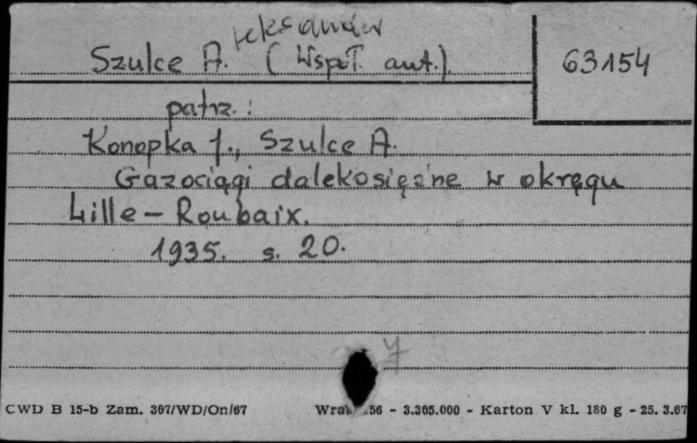 leksander
Szulce A. (Współ. aut.).
63154
patrz.:
Konopka J., Szulce A.
Gazociągi dalekosiężne w okręgu
Lille - Roubaix.
1935. s. 20.
CWD B 15-b Zam. 307/WD/On/67 56 - 3.305.000 - Karton V kl. 180 g - 25. 3.67